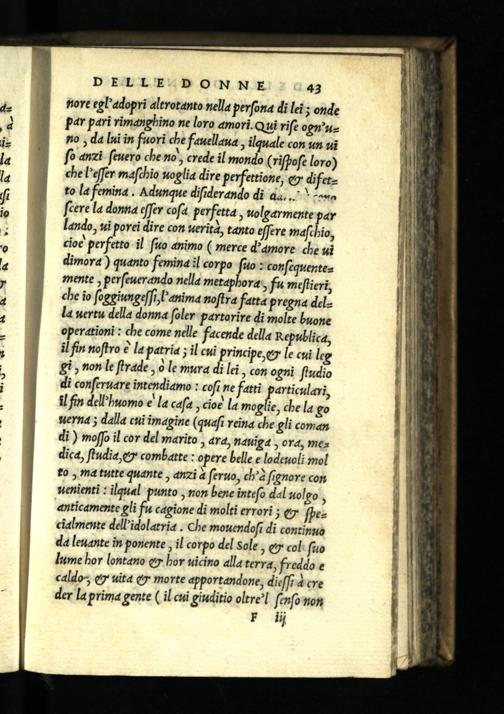 DELLE DONNE 43
nore egl'adopri altrotanto nella persona di lei; onde
par pari rimanghino ne loro amori. Qui rise ogn'u=
no, da lui in fuori che fauellaua, ilquale con un ui
so anzi seuero che no, crede il mondo (rispose loro)
che l'esser maschio uoglia dire perfettione, & difet=
to la femina. Adunque disiderando di
scere la donna esser cosa perfetta, uolgarmente par
lando, ui porei dire con uerità, tanto essere maschio,
cioè perfetto il suo animo (merce d'amore che ui
dimora) quanto femina il corpo suo: consequente=
mente, perseuerando nella metaphora, fu mestieri,
che io soggiungessi, l'anima nostra fatta pregna del=
la uertu della donna soler partorire di molte buone
operationi: che come nelle facende della Republica,
il fin nostro è la patria; il cui principe, & le cui leg
gi, non le strade, ò le mura di lei, con ogni studio
di conseruare intendiamo: cosi ne fatti particulari,
il fin dell'huomo è la casa, cioè la moglie, che la go
uerna; dalla cui imagine (quasi reina che gli coman
di) mosso il cor del marito, ara, nauiga, ora, me=
dica, studia, & combatte: opere belle e lodeuoli mol
to, ma tutte quante, anzi à seruo, ch'à signore con
uenienti: ilqual punto, non bene inteso dal uolgo,
anticamente gli fu cagione di molti errori; & spe=
cialmente dell'idolatria. Che mouendosi di continuo
da leuante in ponente, il corpo del Sole, & col suo
lume hor lontano & hor uicino alla terra, freddo e
caldo, & uita & morte apportandone, diessi à cre
der la prima gente (il cui giuditio oltre'l senso non
F iij